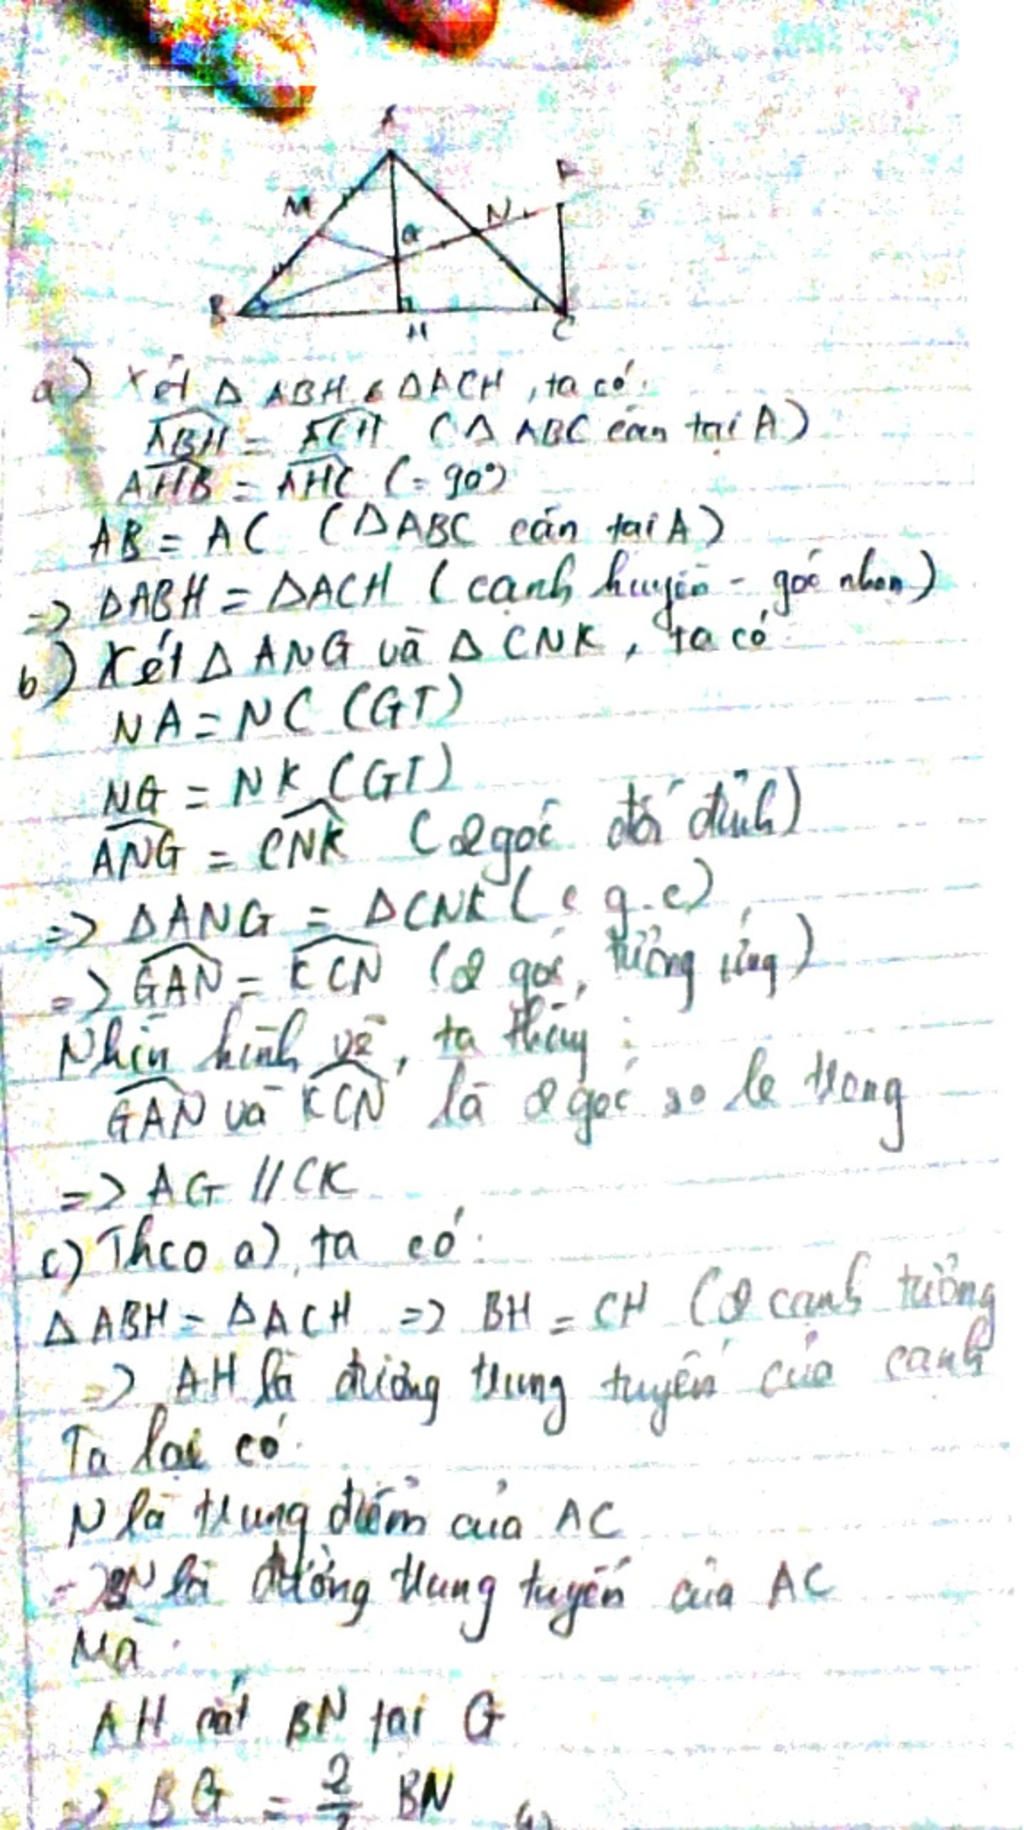 A
M
G
N
K
B
H
C
a) Xét Δ ABH & ΔACH, ta có:
ABH = ACH (Δ ABC cân tại A)
AHB = AHC (= 90°)
AB = AC (ΔABC cân tại A)
=> ΔABH = ΔACH (cạnh huyền - góc nhọn)
b) Xét Δ ANG và Δ CNK, ta có:
NA = NC (GT)
NG = NK (GT)
ANG = CNK (2 góc đối đỉnh)
=> ΔANG = ΔCNK (c.g.c)
=> GAN = KCN (2 góc tương ứng)
Nhìn hình vẽ, ta thấy:
GAN và KCN là 2 góc so le trong
=> AG // CK
c) Theo a), ta có:
Δ ABH = ΔACH => BH = CH (2 cạnh tương
=> AH là đường trung tuyến của cạnh
Ta lại có:
N là trung điểm của AC
=> BN là đường trung tuyến của AC
Mà:
AH cắt BN tại G
=> BG = 2/3 BN